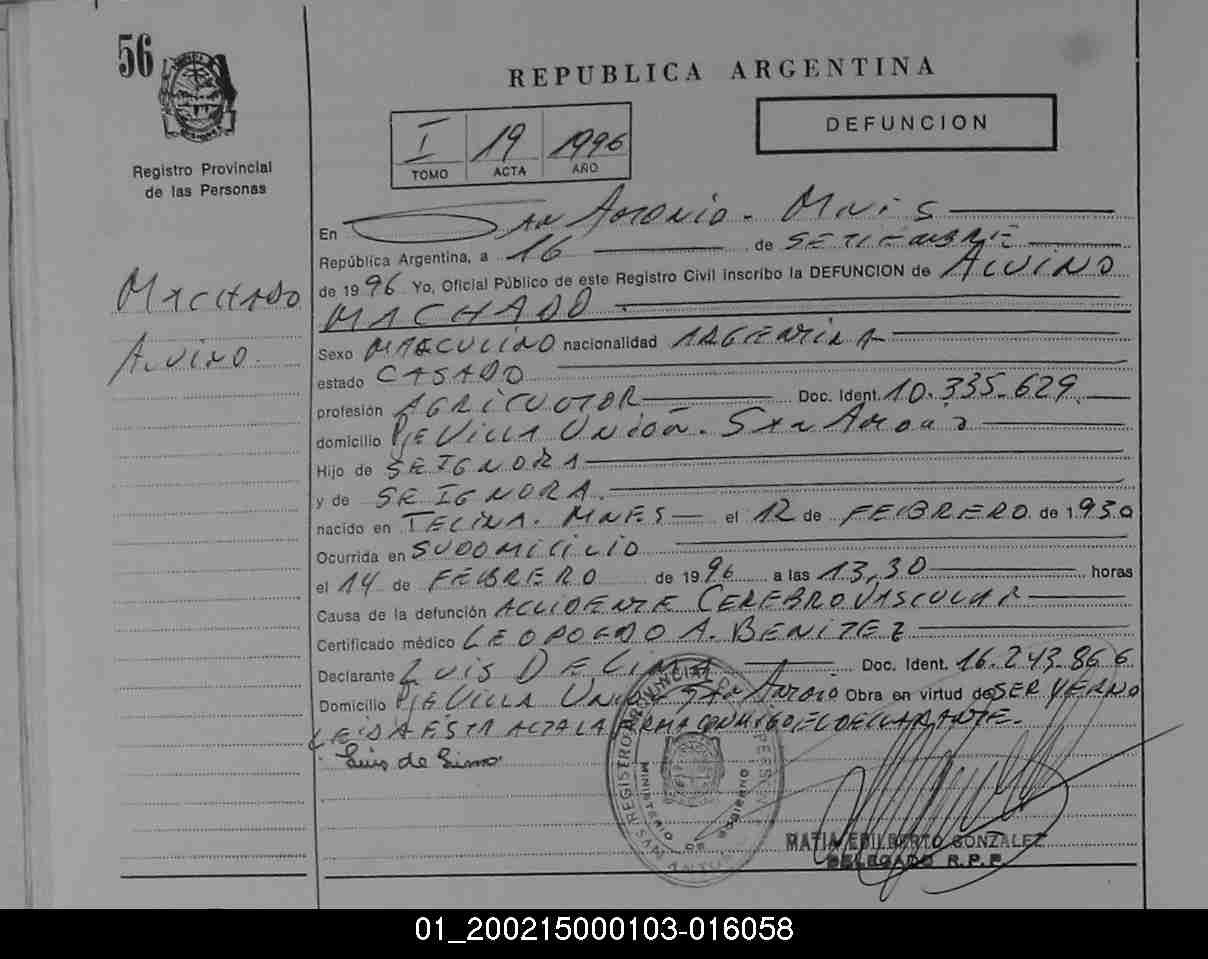 56
REPUBLICA ARGENTINA
I 19 1996
TOMO ACTA AÑO
DEFUNCION
Registro Provincial
de las Personas
MACHADO
ALVINO.
En SAN ANTONIO - MNES
República Argentina, a 16 de SETIEMBRE
de 1996 Yo, Oficial Público de este Registro Civil inscribo la DEFUNCION de ALVINO
MACHADO.
Sexo MASCULINO nacionalidad ARGENTINA
estado CASADO
profesión AGRICULTOR Doc. Ident. 10.335.629
domicilio PJE VILLA UNION. SAN ANTONIO
Hijo de SE IGNORA
y de SE IGNORA.
nacido en MNES el 12 de FEBRERO de 1930
Ocurrida en SU DOMICILIO
el 14 de FEBRERO de 1996 a las 13,30 horas
Causa de la defunción ACCIDENTE CEREBRO VASCULAR
Certificado médico LEOPOLDO A. BENITEZ
Declarante LUIS DE LIMA Doc. Ident. 16.243.866
Domicilio PJE VILLA UNION SAN ANTONIO Obra en virtud de SER YERNO
LEIDA ESTA ACTA LA FIRMA CONMIGO EL DECLARANTE.
Luis de Lima
REGISTRO PROVINCIAL DE LAS PERSONAS
MINISTERIO DE GOBIERNO
SAN ANTONIO
MATIA EDILBERTO GONZALEZ
DELEGADO R.P.P.
01_200215000103-016058